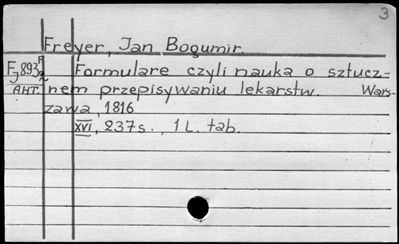 3
Freyer, Jan Bogumir.
Formulare czyli nauka o sztucz=
АНТ. nem przepisywaniu lekarstw. Wars-
zawa, 1816
XVI, 237 s., 1 L. tab.